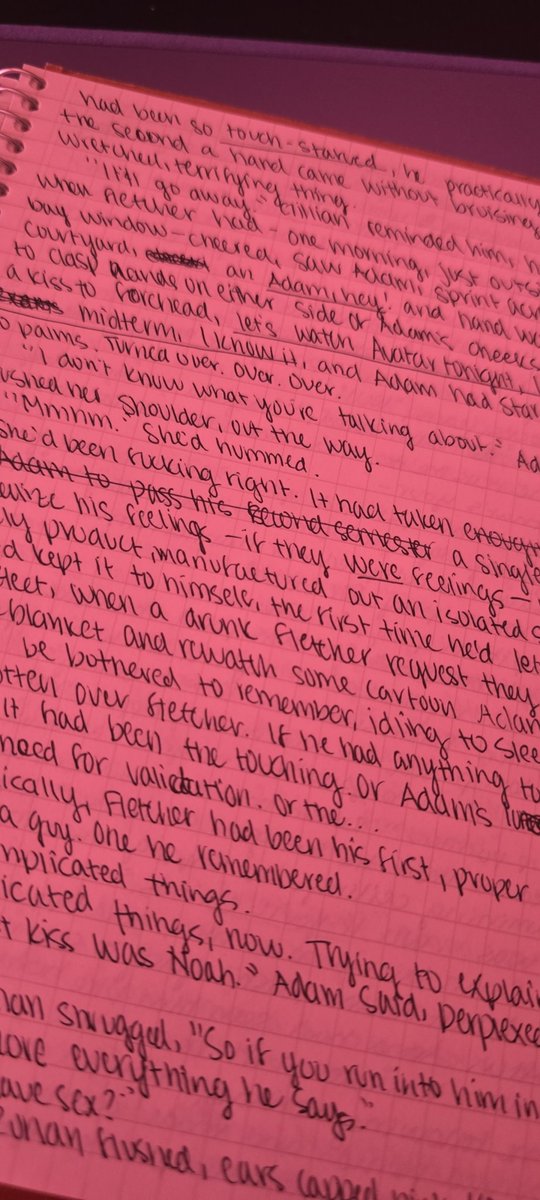 had been so touch-starved, he practically
the second a hand came without bruising
wretched, terrifying thing.
"It'll go away," Cillian reminded him,
when Fletcher had - one morning, just outs
bay window - cheered, saw Adam, sprint acr
courtyard, an Adam, hey! and hand
to clasp hands on either side of Adam's cheeks
a kiss to forehead, let's watch Avatar tonight,
midterm, I know it, and Adam had star
o palms. Turned over. Over. Over.
"I don't know what you're talking about." Ad
ushed her shoulder, out the way.
"Mmhm." She'd hummed.
she'd been fucking right. It had taken enough
Adam to pass his second semester a single
his feelings - if they were feelings -
ly product, manufactured out an isolated
d kept it to himself, the first time he'd let
fleet, when a drunk Fletcher request they
blanket and rewatch some cartoon Adam
be bothered to remember, idling to slee
otten over Fletcher. If he had anything to
it had been the touching. Or Adam's
need for validation. Or the...
ically, Fletcher had been his first, proper
a guy. One he remembered.
mplicated things.
icated things, now. Trying to explain
t kiss was Noah." Adam said, perplexed
han shrugged, "So if you run into him in
love everything he says."
ave sex?"
flushed, ears